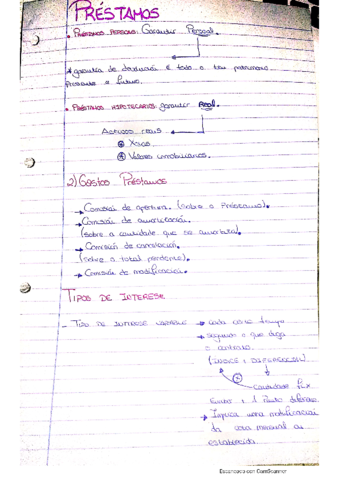 PRÉSTAMOS
• PRÉSTAMOS PERSONAIS: Garantía Persoal.
A garantía de devolución é todo o teu patrimonio
presente e futuro.
• PRÉSTAMOS HIPOTECARIOS: garantía Real.
Activos reais
Xoias
Valores inmobiliarios.
2) Gastos Préstamos
→ Comisión de apertura. (sobre o Préstamo).
→ Comisión de amortización.
(sobre a cantidade que se amortiza).
→ Comisión de cancelación.
(sobre o total pendente).
→ Comisión de modificación.
TIPOS DE INTERESE
- TIPO DE INTERESE VARIABLE → cada certo tempo
→ segundo o que diga
o contrato.
(ÍNDICE + DIFERENCIAL)
cantidade fixa
Euribor + 1 Punto diferencial
→ Implica unha modificación
da cota mensual a
establecida
Escaneado con CamScanner